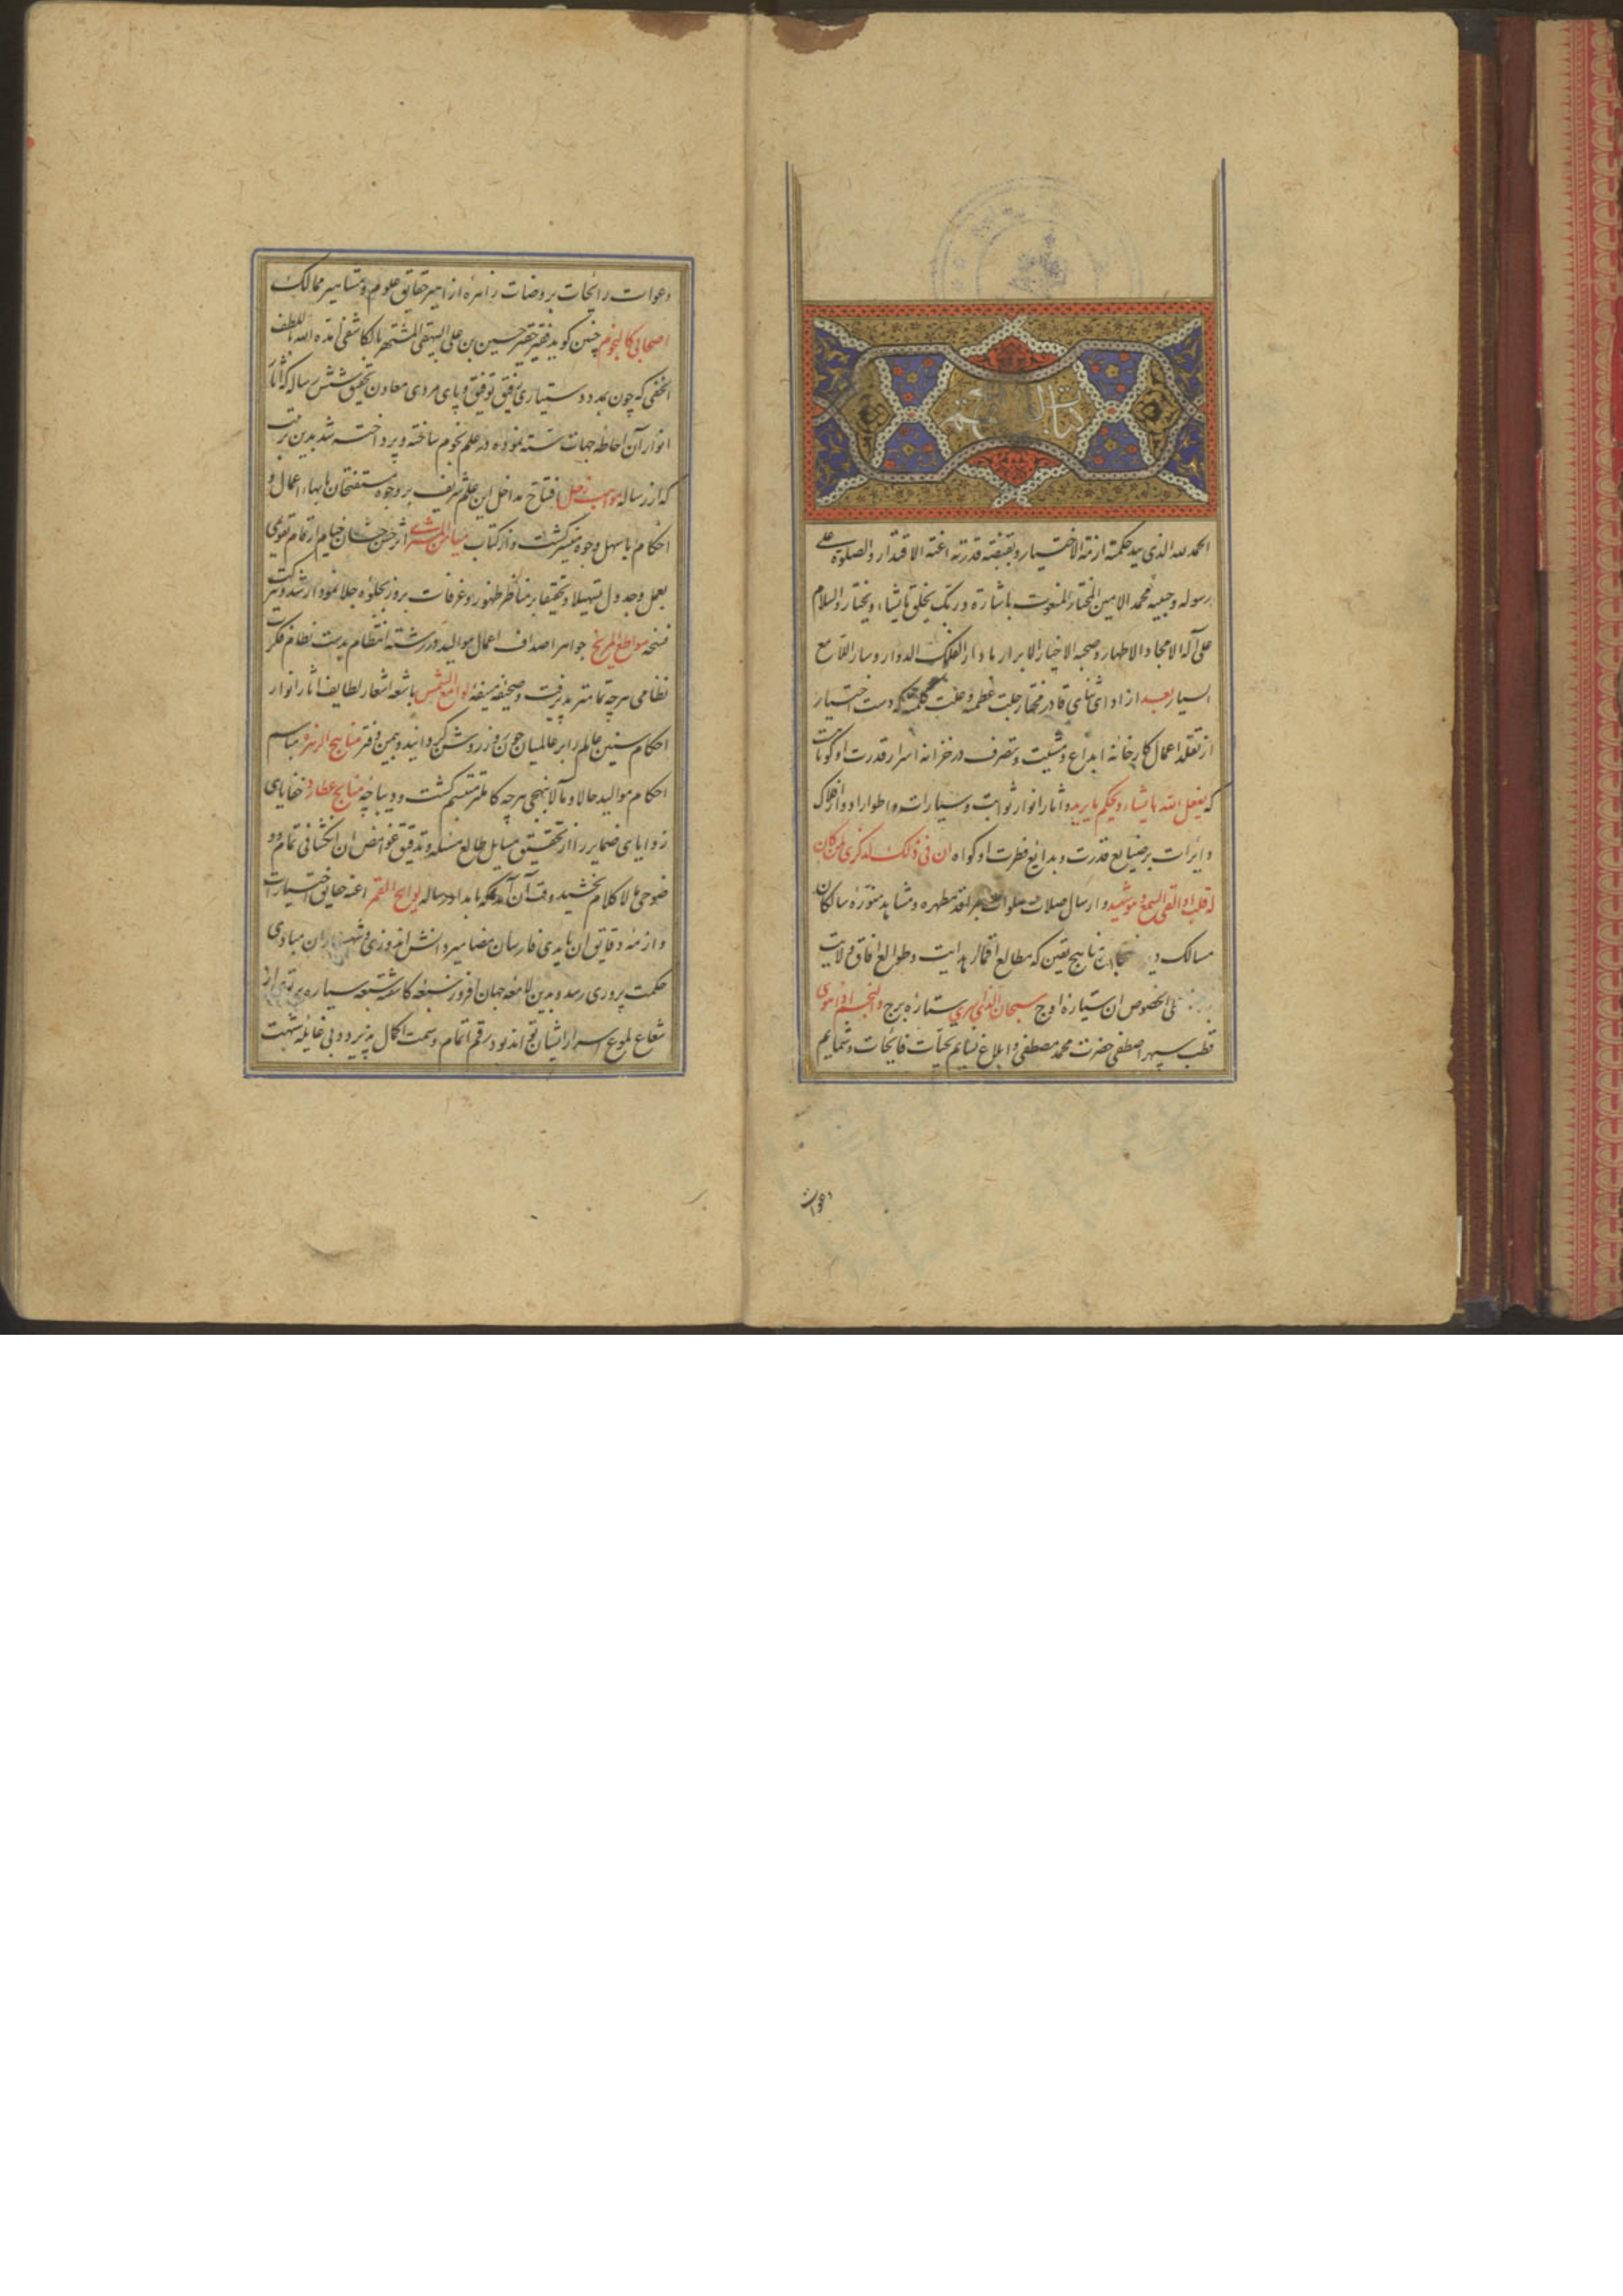 الحمد لله الذی بید حکمته ازمة الاختیار وبقبضة قدرته اعنة الاقتدار والصلوة علی
رسوله وحبیبه محمد الامین المختار المنعوت باشارة وربک یخلق ما یشاء ویختار والسلام
علی آله الامجاد الاطهار وصحبه الاخیار الابرار ما دار الفلک الدوار وسار اللامع
السیار بعد از ادای ثنای قادر مختار جلت عظمته و علت کلمته که دست اختیار
از تقلد اعمال کارخانه ابداع و مشیت و تصرف در خزانه اسرار قدرت او کوتاست
که یفعل الله ما یشاء ویحکم ما یرید و آثار انوار ثوابت و سیارات و اطوار ادوار افلاک
و ایرات بر ضنایع قدرت و بدایع فطرت او کواه ان فی ذلک لذکری لمن کان
له قلب او القی السمع وهو شهید و ارسال صلات صلوات بر مراقد مطهره و مشاهد منوره سالکان
مسالک یقین که مطالع اقمار هدایت و طوالع آفاق ولایت
علی الخصوص ان سیاره اوج سبحان الذی اسری ستاره برج والنجم اذا هوی
قطب سپهر اصطفی حضرت محمد مصطفی و ابلاغ نسایم تحیات فایحات و شمایم
دعوات
دعوات رایحات بروضات زاهره ازاهیر حقایق علوم و مشاهیر ممالک
اصحابی کالنجوم چنین کوید فقیر حقیر حسین بن علی البیهقی المشتهر بالکاشفی ایده الله باللطف
الخفی که چون بمدد دستیاری رفیق توفیق و پای مردی معاون تحقیق شش رساله که آثار
انوار آن احاطه جهات سته نموده در علم نجوم ساخته و پرداخته شد بدین ترتیب
که از رساله مواهب زحل افتتاح مداخل این علم شریف بر وجوه مستفتحان بابهاء اعمال و
احکام باسهل وجوه میسر کشت و از کتاب میامن المشتری اثر حسن حسان خیام ارقام تقویمی
بعمل و جدول تسهیلا و تحقیقا بر مناظر ظهور و غرفات بروز بجلوه جلا نمودار شد و بترکیب
نسخه سواطع المریخ جواهر اصداف اعمال موالید در رشته انتظام بدست نظام فکرت
نظامی هرچه تمامتر پذیرفت و صحیفه منیفه لوامع الشمس باشعه اشعار لطایف آثار انوار
احکام سنین عالم را بر عالمیان چون روز روشن کردانید و بیمن دفتر مناهج الزهره مباسم
احکام موالید حالا و مآلا بنهجی هرچه کاملتر متبسم کشت و دیباچه مناهج عطارد خفایای
زوایای ضمایر را از تحقیق مسایل طالع مسئله و تدقیق غوامض ان انکشافی تمام و
ضوحی لا کلام بخشید وقت آن آمد که بامداد رساله لوایح القمر اعنه حقایق اختیارات
و ازمه دقایق ان بایدی فارسان مضامیر دانش اندوزی و شهسواران مبادی
حکمت پروری رسد و بدین لامعه جهان افروز سبعه کاشفه سبعه سیاره پرتوی از
شعاع لموع اسرار ایشان تواند بود رقم اتمام و سمت اکمال پذیرد و بی غایله شبهت